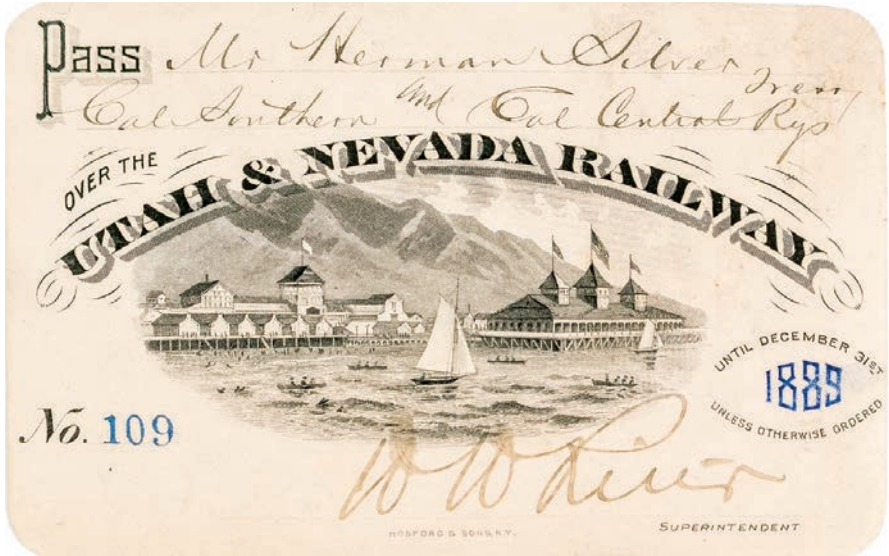 Pass Mr Herman Silver
Treas,
Cal Southern and Cal Central Rys
OVER THE
UTAH & NEVADA RAILWAY
UNTIL DECEMBER 31ST
1889
UNLESS OTHERWISE ORDERED
No. 109
W W Riter
HOSFORD & SONS, N.Y.
SUPERINTENDENT